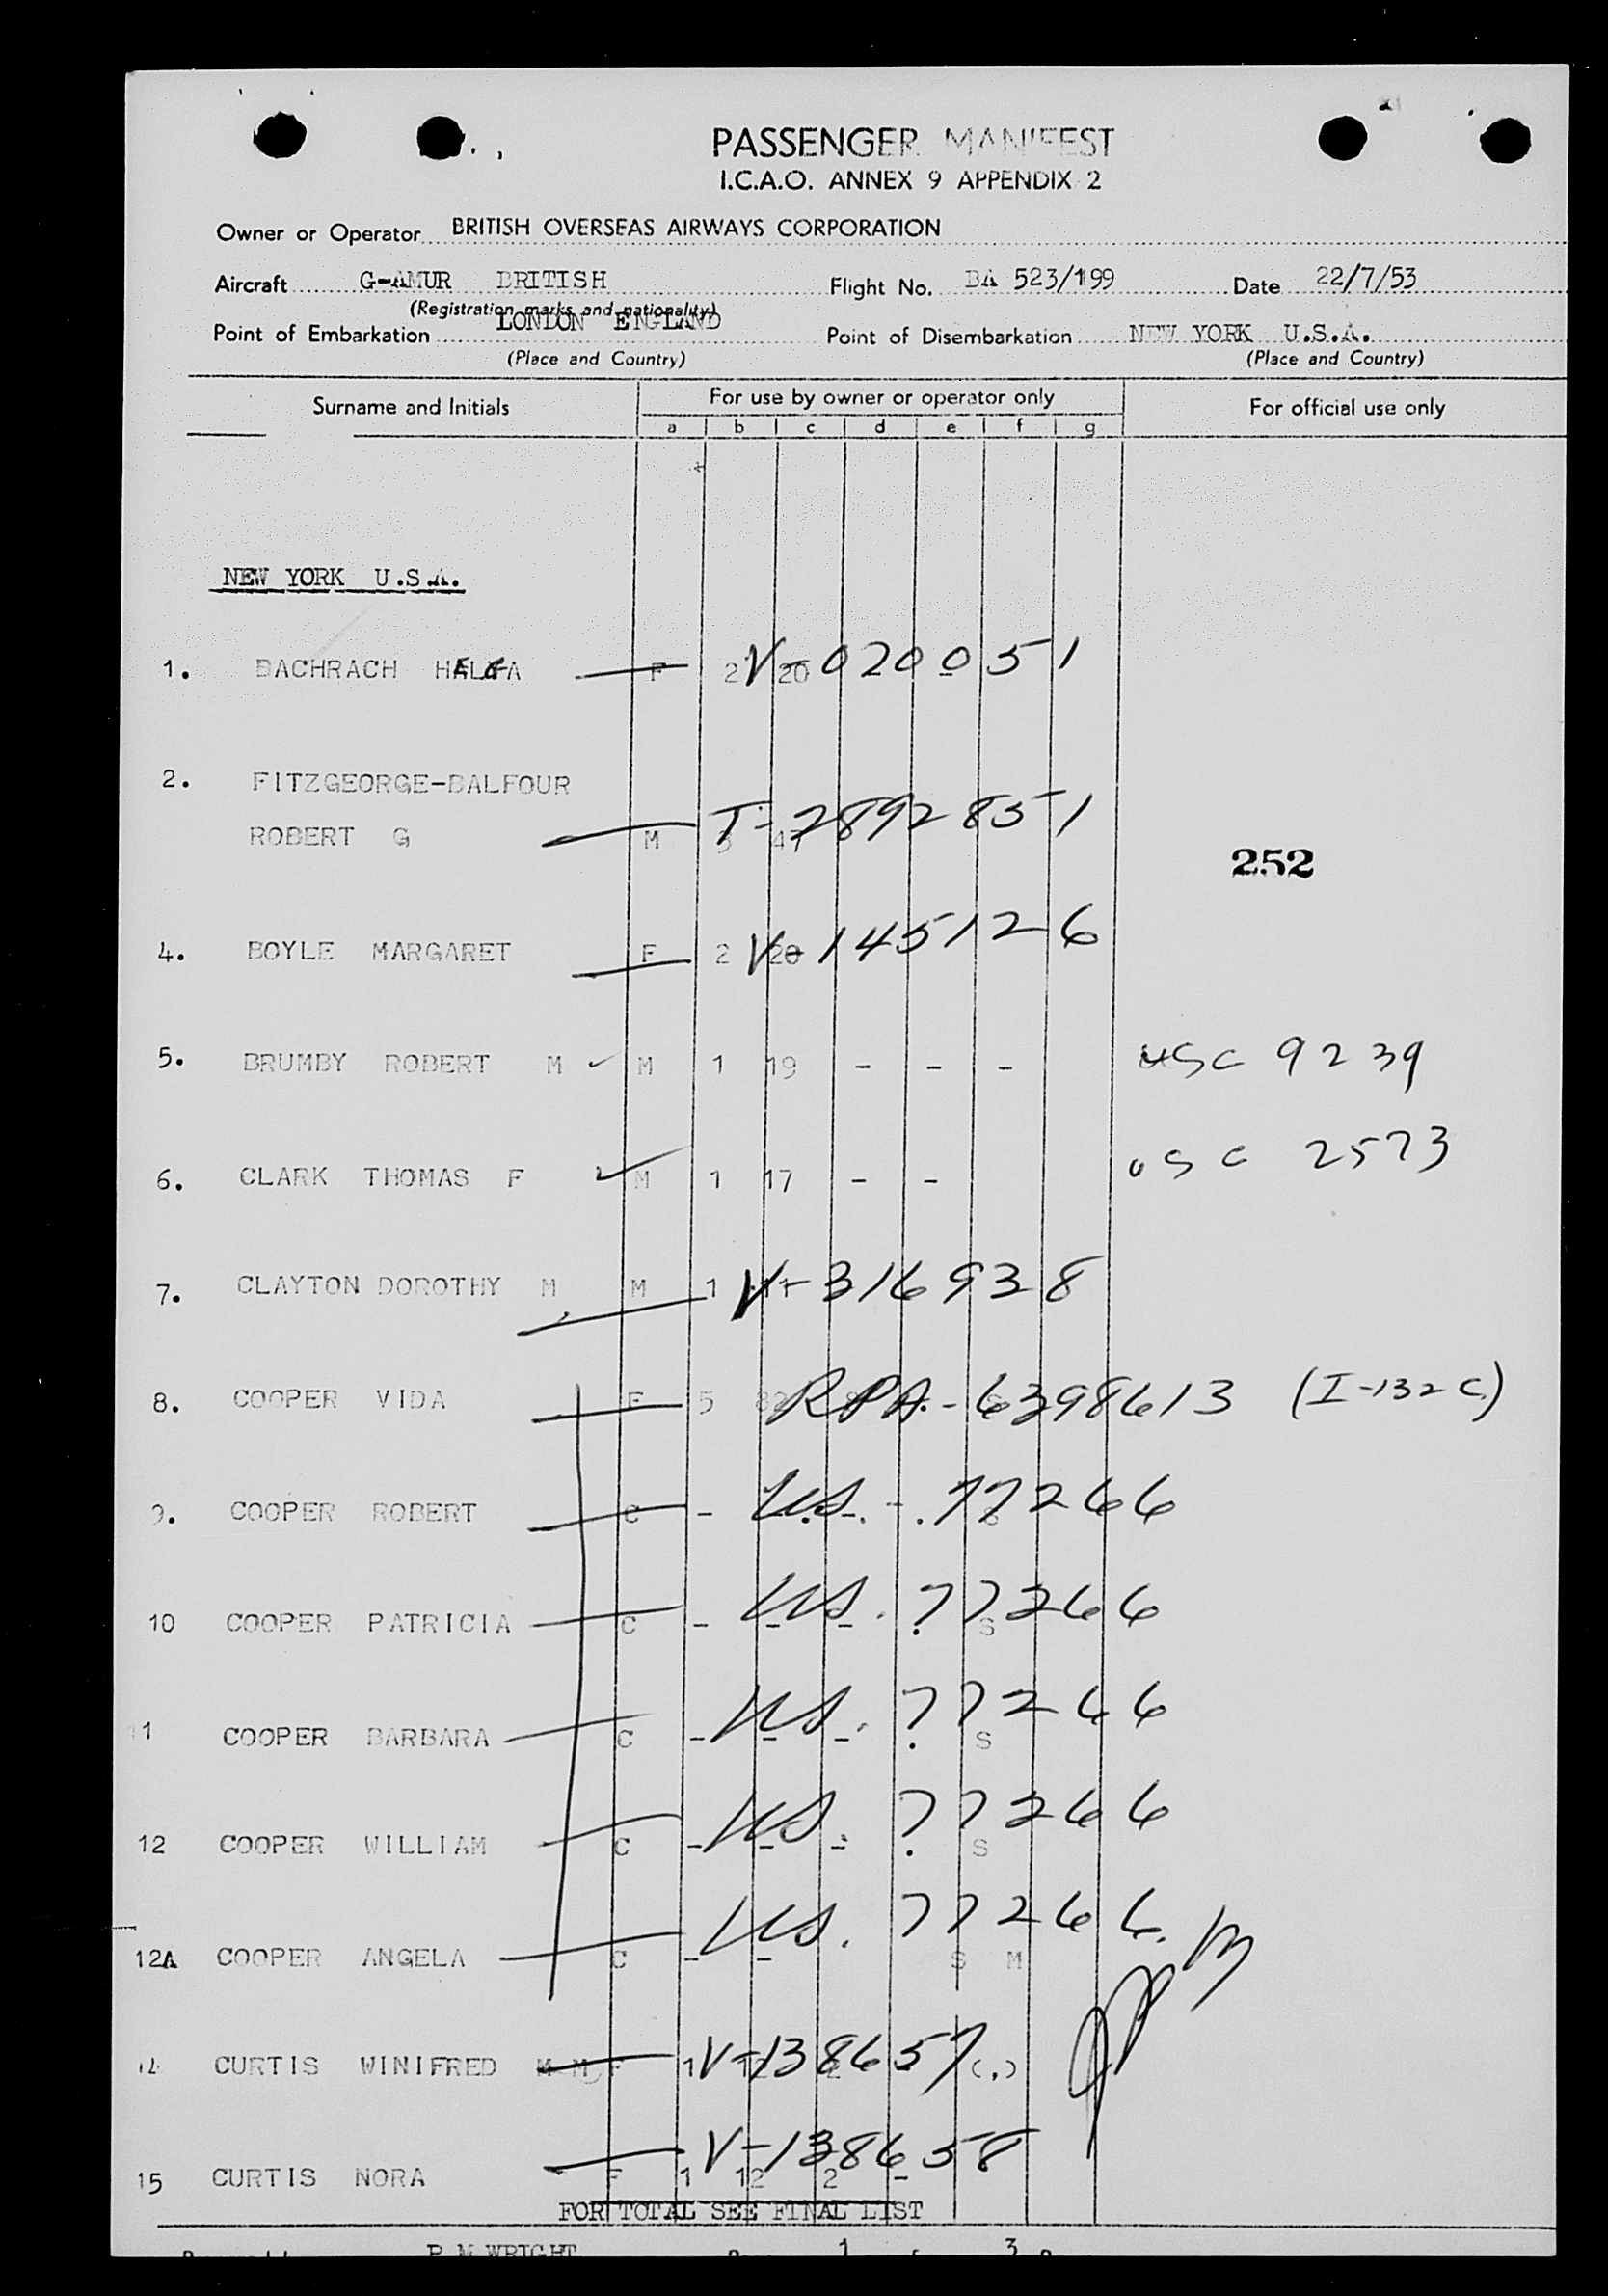 PASSENGER MANIFEST
I.C.A.O. ANNEX 9 APPENDIX 2
Owner or Operator BRITISH OVERSEAS AIRWAYS CORPORATION
Aircraft G-AMUR BRITISH Flight No. BA 523/199 Date 22/7/53
(Registration marks and nationality)
Point of Embarkation LONDON ENGLAND Point of Disembarkation NEW YORK U.S.A.
(Place and Country) (Place and Country)
Surname and Initials For use by owner or operator only For official use only
a b c d e f g
NEW YORK U.S.A.
1. BACHRACH HELGA F 2 20 V-0200051
2. FITZGEORGE-BALFOUR
ROBERT G M 3 47 T-2892851
252
4. BOYLE MARGARET F 2 20 V-145126
5. BRUMBY ROBERT M M 1 19 - - - USC 9239
6. CLARK THOMAS F M 1 17 - - USC 2573
7. CLAYTON DOROTHY M M 1 V-316938
8. COOPER VIDA F 5 RPA-6398613 (I-132C)
9. COOPER ROBERT C - U.S. 77266
10 COOPER PATRICIA C - - - US. 77266 S
11 COOPER BARBARA C - - - US. 77266 S
12 COOPER WILLIAM C - - - US. 77266 S
12A COOPER ANGELA C - - US. 77266 S M
14 CURTIS WINIFRED M M F 1 12 2 V-138657 (.)
15 CURTIS NORA F 1 12 2 - V-138658
FOR TOTAL SEE FINAL LIST
P N WRIGHT 1 3